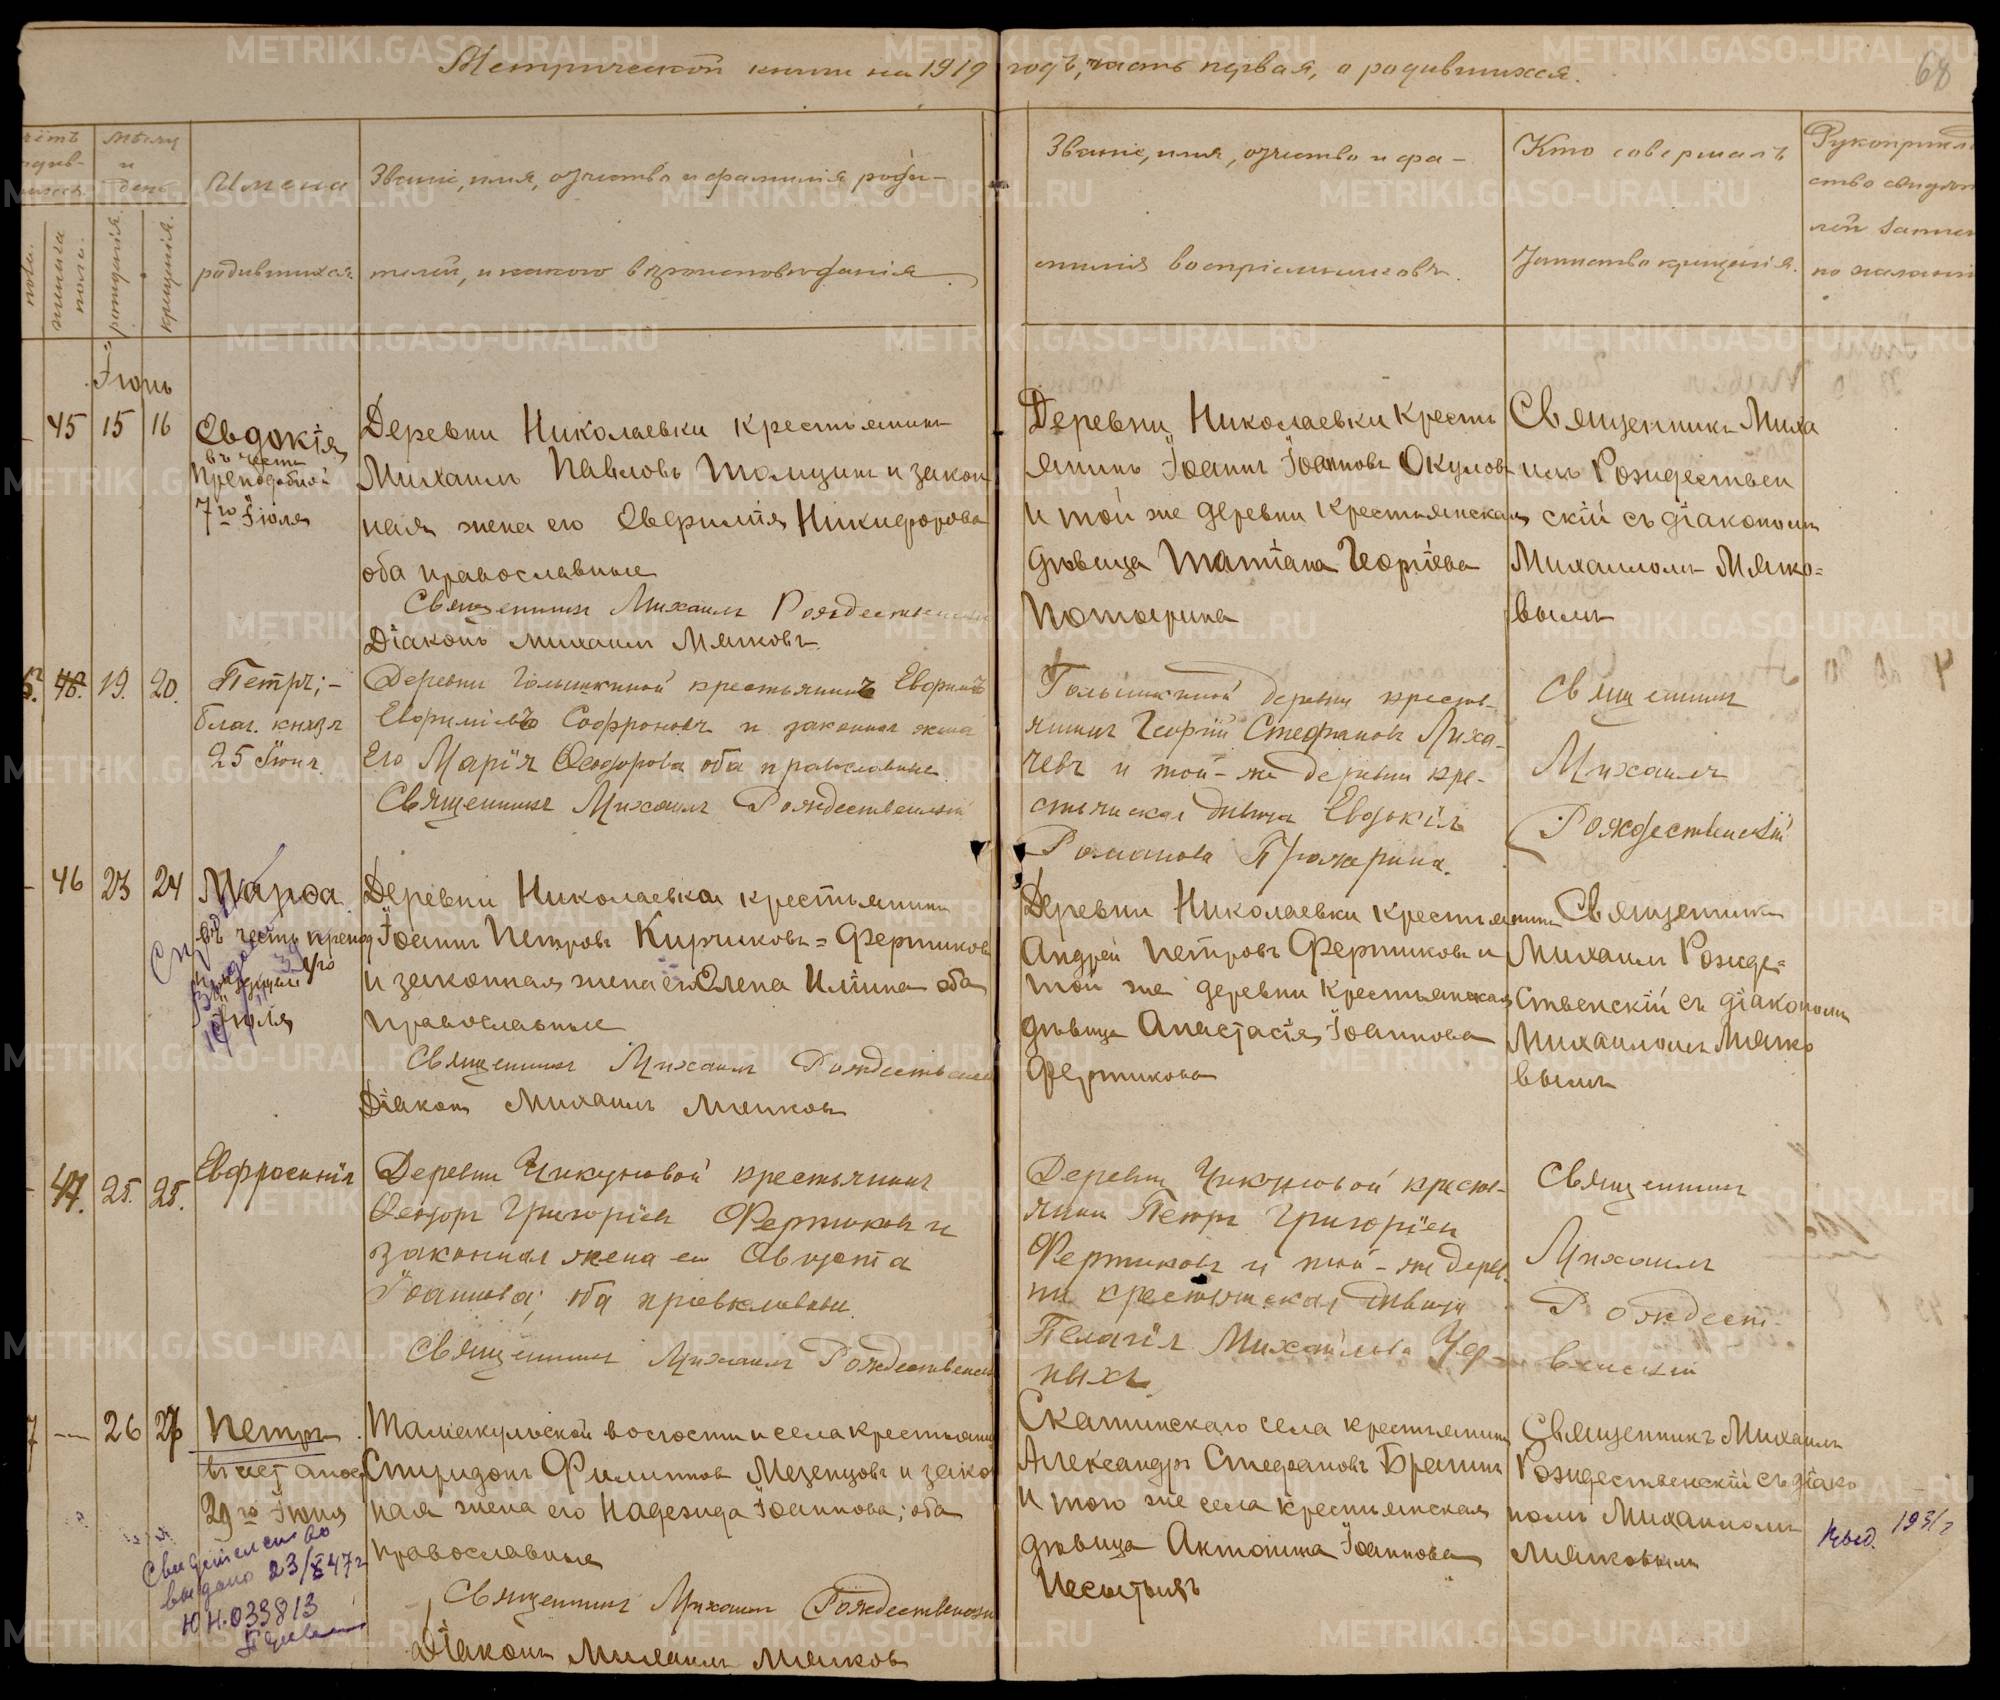 Метрической книги на 1919 годъ, часть первая, о родившихся.
68
Мѣсяц и день
рожденія.
крещенія.
женска полу.
Имена
родившихся.
Званіе, имя, отчество и фамилія роди-
телей, и какого вѣроисповѣданія.
Званіе, имя, отчество и фа-
милія воспріемниковъ.
Кто совершалъ
таинство крещенія.
Рукоприкл
ство свидѣт
лей записи
по желанію
Іюнь
45 15 16
Евдокія
въ честь
Преподобной
7го Іюля
Деревни Николаевки крестьянинъ
Михаилъ Павловъ Толмзинъ и закон
ная жена его Евфимія Никифорова
оба православные
Священникъ Михаилъ Рождественскій
Діаконъ Михаилъ Мяжковъ
Деревни Николаевки кресть
янинъ Іоаннъ Іоанновъ Окулов
и той же деревни крестьянская
дѣвица Татіана Георгіева
Священникъ Миха
илъ Рождествен
скій съ діакономъ
Михаиломъ Мяжко=
вымъ
19. 20.
Петръ; -
благ. князя
25 Іюня
Деревни Голышкиной крестьянинъ Ефримъ
Ефриміевъ Софроновъ и законная жена
его Марія Ѳеодорова оба православные.
Священникъ Михаилъ Рождественскій
Голышкиной деревни кресть-
янинъ Георгій Стефановъ Лиха-
чевъ и той-же деревни кре-
стьянская дѣвица Евдокія
Романова
Священникъ
Михаилъ
Рождественскій
46 23 24
Марѳа
въ честь препод
Іюля
Деревни Николаевки крестьянинъ
Іоаннъ Петровъ Кирчиковъ = Фертиковъ
и законная жена его Елена Иліина оба
православные
Священникъ Михаилъ Рождественскій
Діаконъ Михаилъ Мяжковъ
Деревни Николаевки крестьянинъ
Андрей Петровъ Фертиковъ и
той же деревни крестьянская
дѣвица Анастасія Іоаннова
Фертикова
Священникъ
Михаилъ Рожде=
ственскій съ діакономъ
Михаиломъ Мяжко
вымъ
47. 25. 25.
Евфросинія
Деревни Чикуновой крестьянинъ
Ѳеодоръ Григоріевъ Фертиковъ и
законная жена его Августа
Іоаннова; оба православные.
Священникъ Михаилъ Рождественскій
Деревни Чикуновой кресть-
янинъ Петръ Григоріевъ
Фертиковъ и той-же дерев-
ни крестьянская дѣвица
Пелагія Михайлова Чер-
ныхъ.
Священникъ
Михаилъ
Рождест-
венскій
7 — 26 27
Петръ
въ чест апос
29го Іюня
Талмакульской волости и села крестьянинъ
Спиридонъ Филиповъ Мезенцовъ и закон
ная жена его Надежда Іоаннова; оба
православные
Священникъ Михаилъ Рождественскій
Діаконъ Михаилъ Мяжковъ
Скатинскаго села крестьянинъ
Александръ Стефановъ Брагинъ
и того же села крестьянская
дѣвица Антонина Іоаннова
Священникъ Михаилъ
Рождественскій съ діако
номъ Михаиломъ
Мяжковымъ
Свидетельство
выдано 23/X 47г
ЮН.033813
выд. 1931г